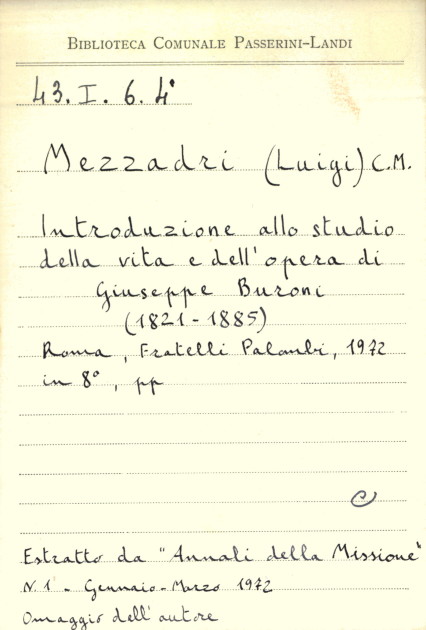 BIBLIOTECA COMUNALE PASSERINI-LANDI
43. I. 6. 4°
Mezzadri (Luigi) C.M.
Introduzione allo studio
della vita e dell'opera di
Giuseppe Buroni
(1821-1885)
Roma, Fratelli Palombi, 1972
in 8°, pp
C
Estratto da "Annali della Missione"
N. 1 - Gennaio-Marzo 1972
Omaggio dell'autore